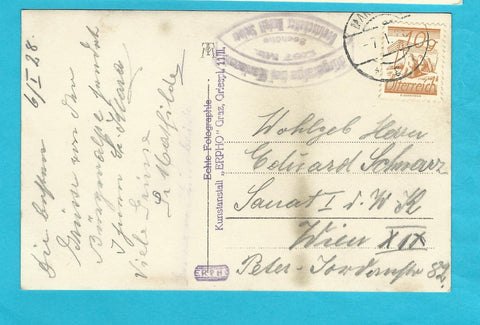 6/I 28.
Die besten
Grüße von der
Bürgeralpe sendet
Ihnen
Viele Grüße
Mathilde
Echte Fotographie
Kunstanstalt „ERPHO" Graz, Griesgt. 11/II.
ERPHO
10
Österreich
Wohlgeb Herrn
Eduard Schwarz
Sanat I d. W K
Wien XIX
Peter-Jordanstr 82.